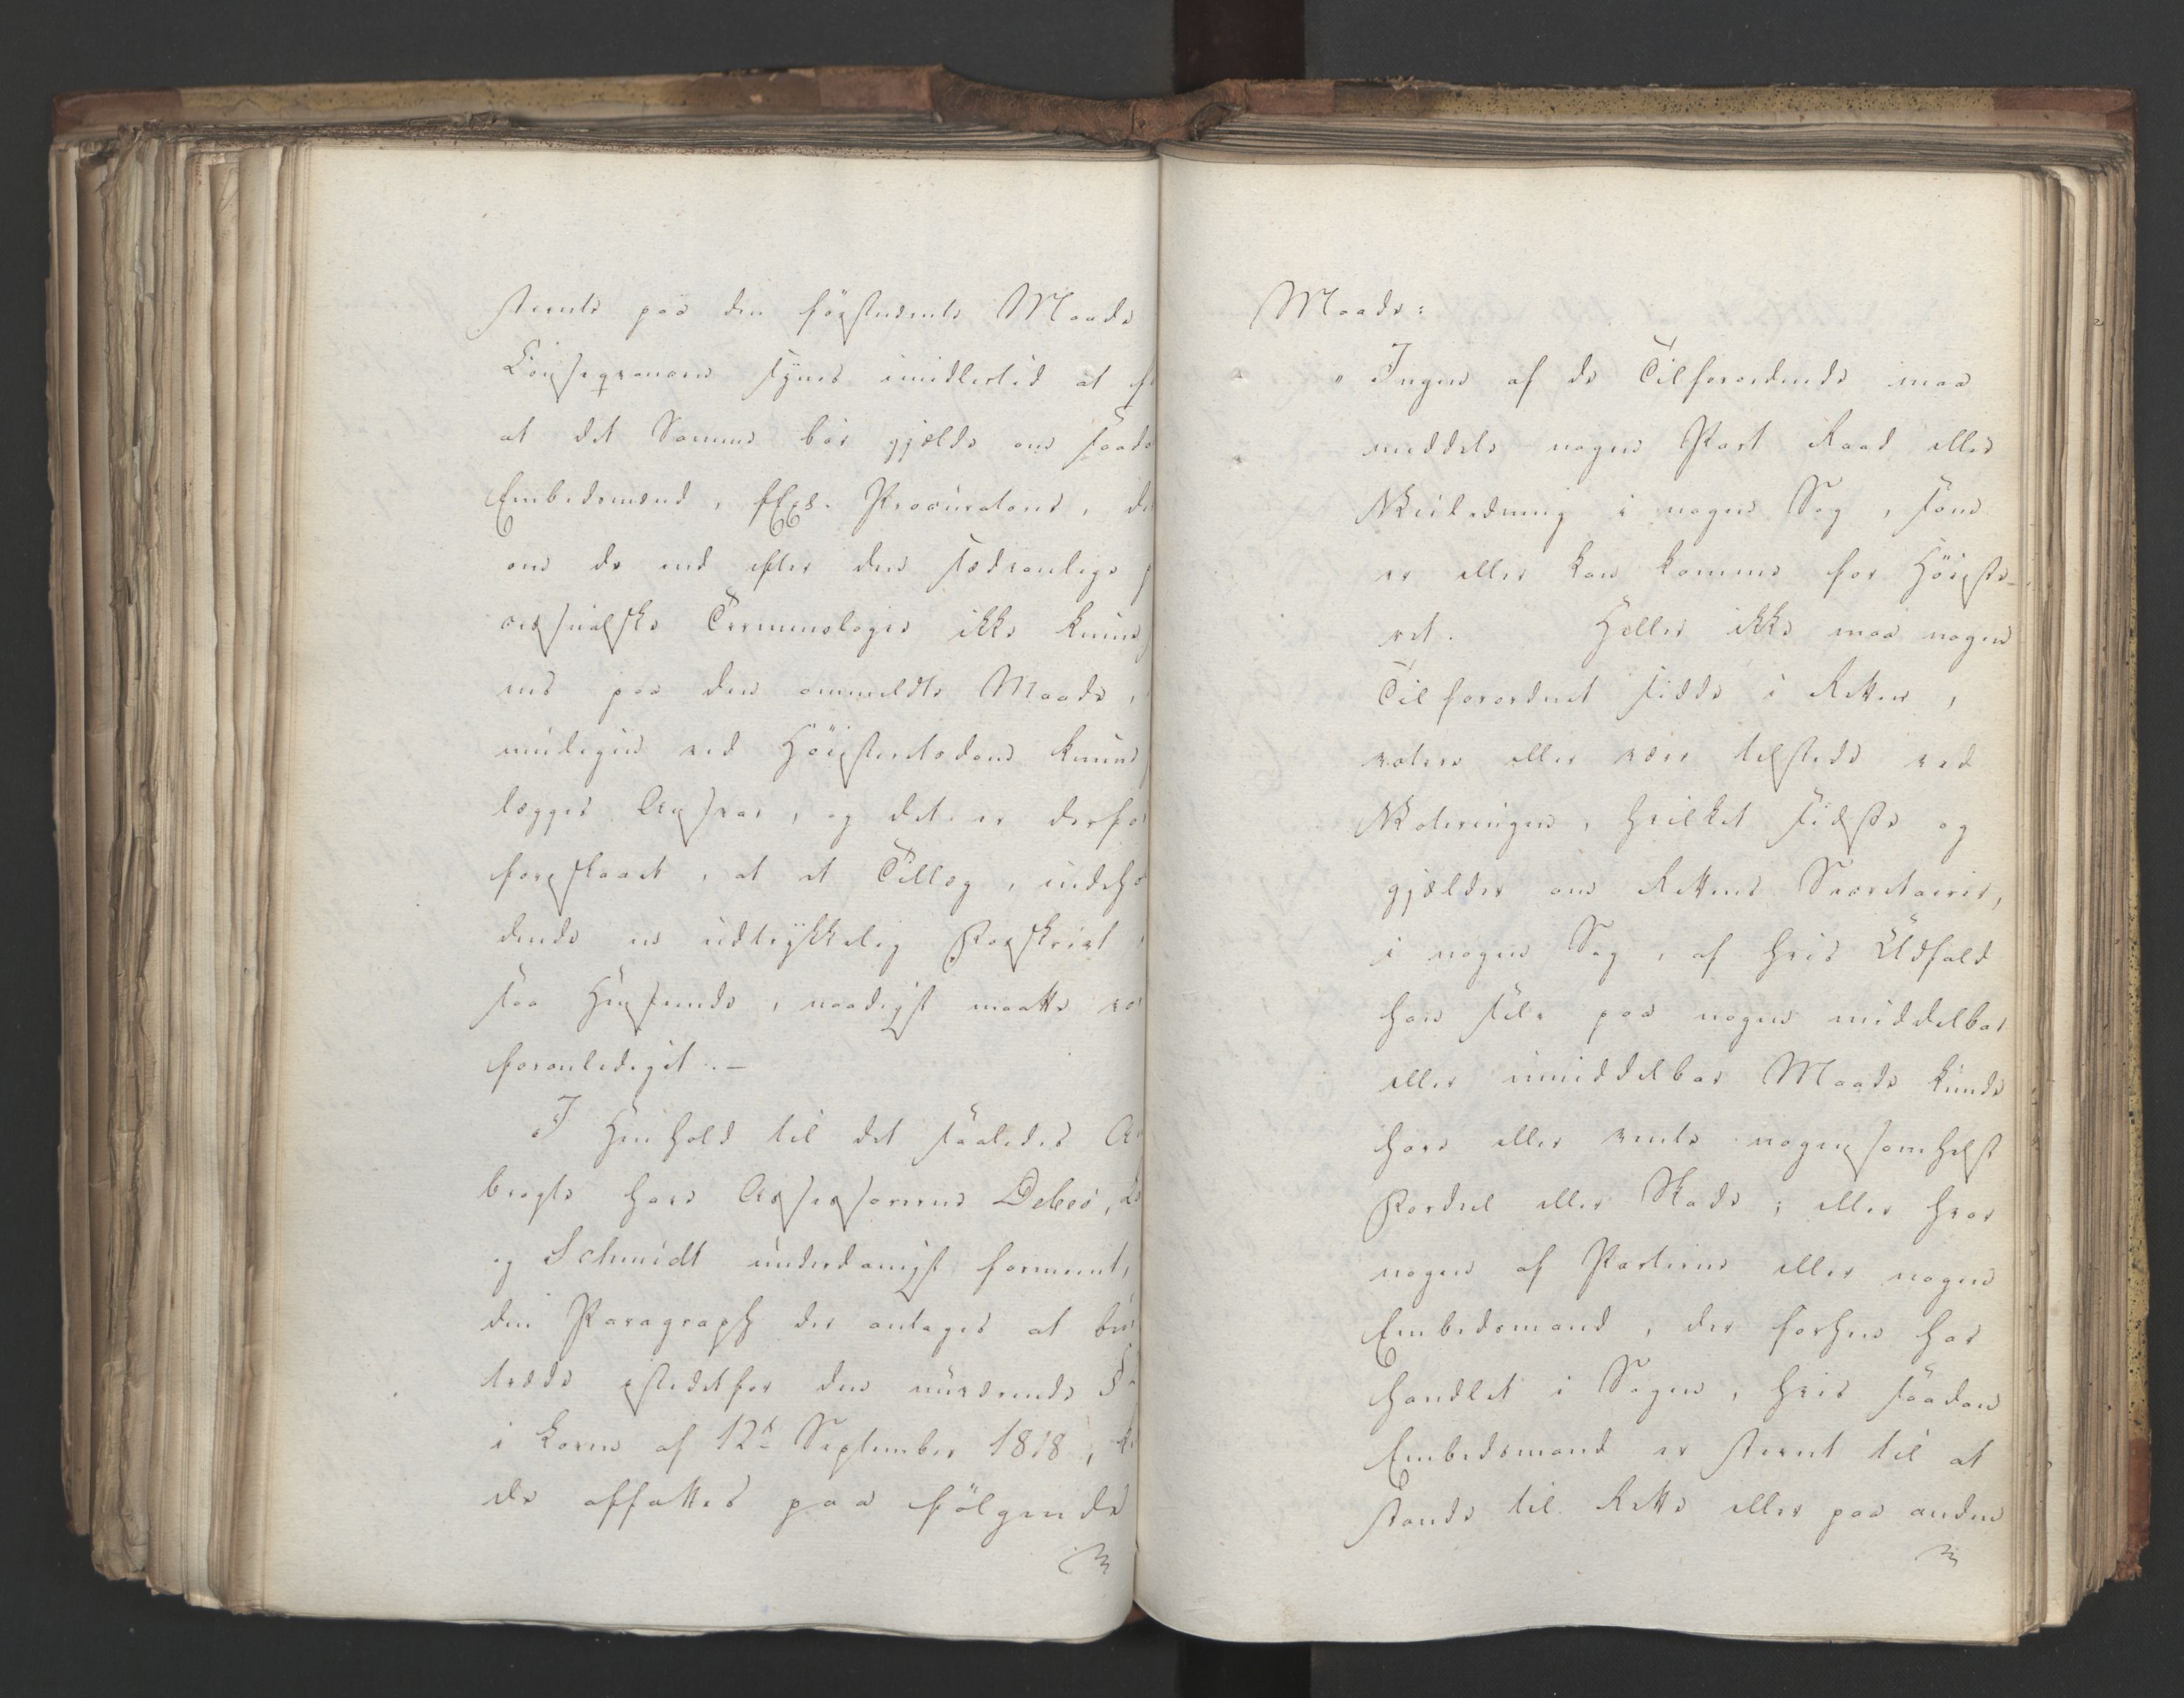 stevnte paa den førstnævnte Maade
Conseqvancen synes imidlertid at
at det Samme bør gjælde om saada
Embedsmænd, f Ex. Procuratorer,
om de end efter den sædvanlige
cessualske Terminologie ikke kunne
nes paa den ommeldte Maade,
muligen ved Høiesteretsdom kunne
lægges Ansvar, og det er derfor
foreslaaet, at et Tillæg, indeho
dende en udtrykkelig Forskrivt
saa Henseende, naadigst maatte
foranlediget.—
I Henhold til det saaledes
bragte have Assessorerne Debes,
og Schmidt underdanigst formeent,
den Paragraph der antages at bør
træde istedetfor den nuværende §
i Loven af 12te September 1818,
de affattes paa følgende
Maade:
"Ingen af de Tilforordnede maa
meddele nogen Part Raad eller
Veiledning i nogen Sag, som
er eller kan komme for Høieste-
ret. Heller ikke maa nogen
Tilforordnet sidde i Retten,
votere eller være tilstede ved
Voteringen, hvilket sidste og
gjælder om Rettens Secretairer,
i nogen Sag, af hvis Udfald
han selv paa nogen middelbar
eller umiddelbar Maade kunde
have eller vente nogensomhelst
Fordeel eller Skade; eller hvor
nogen af Parterne eller nogen
Embedsmand, der forhen har
handlet i Sagen, hvis saadan
Embedsmand er stevnt til at
stande til Rette eller paa anden